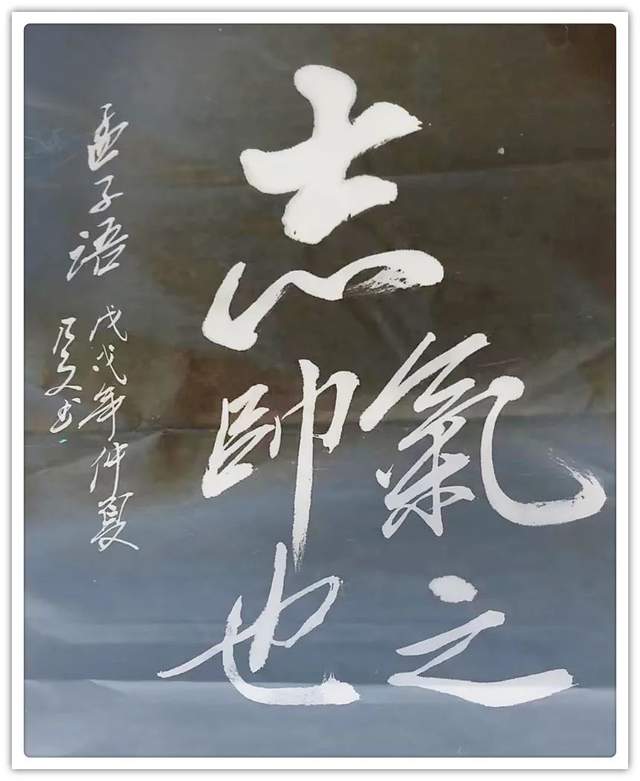 志
氣之
帥也
孟子語
戊戌年仲夏
文书